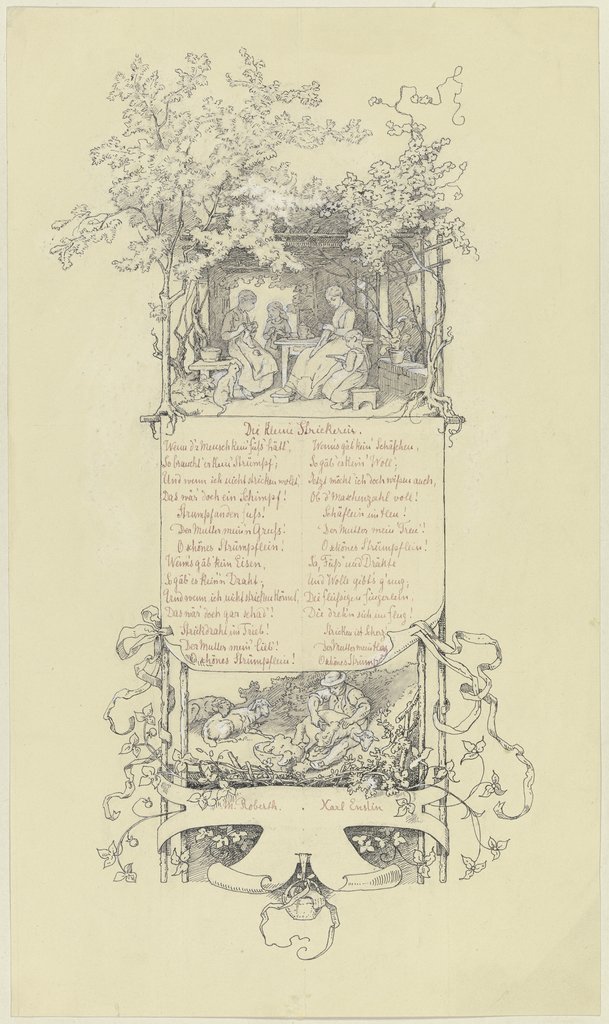 Die kleine Strickerin.
Wenn d'r Mensch kein' Fuß hätt',
So braucht' er kein' Strümpf;
Und wenn ich nicht stricken wollt'
Das wär' doch ein Schimpf!
Strumpf an den Fuß!
Der Mutter mein'n Gruß!
O schönes Strümpflein!
Wenn's gäb' kein Eisen,
So gäb' es kein'n Draht,
Und wenn ich nicht stricken könnt,
Das wär' doch gar schad'!
Strickdraht im Trieb!
Der Mutter mein' Lieb!
O schönes Strümpflein!
Wenn's gäb' kein' Schäfchen,
So gäb' es kein' Woll;
Jetzt möcht' ich doch wissen auch,
Ob d' Maschenzahl voll!
Schäflein im Heu!
Der Mutter mein' Treu'!
O schönes Strümpflein!
Ja, Füß' und Drähte
Und Wolle giebt's g'nug;
Die fleißigen Fingerlein,
Die dreh'n sich im Flug!
Stricken ist Scherz
Der Mutter mein
O schönes Strümpf
W. Roberth. . Karl Enslin